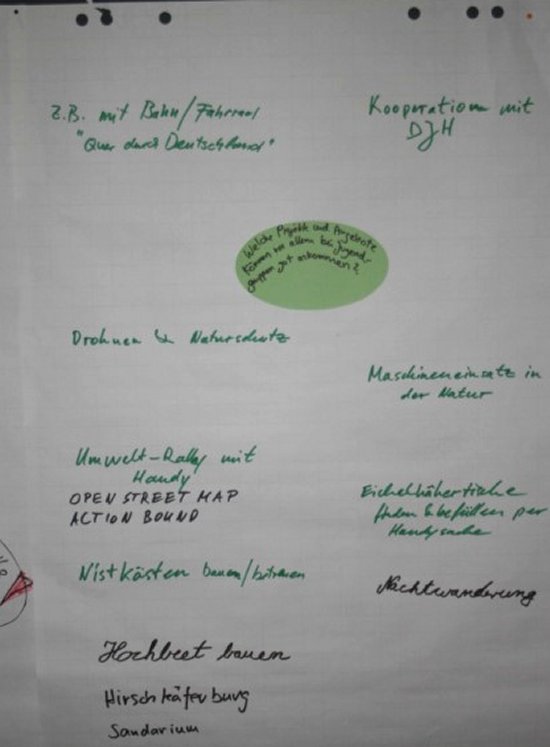 Z.B. mit Bahn/Fahrrad
"Quer durch Deutschland"
Kooperation mit
DJH
Welche Projekte und Angebote
können vor allem bei Jugend-
gruppen gut ankommen?
Drohnen & Naturschutz
Maschineneinsatz in
der Natur
Umwelt-Rally mit
Handy
OPEN STREET MAP
ACTION BOUND
Eichelhähertische
finden & befüllen per
Handysuche
Nistkästen bauen/betreuen
Nachtwanderung
Hochbeet bauen
Hirschkäferburg
Sandarium